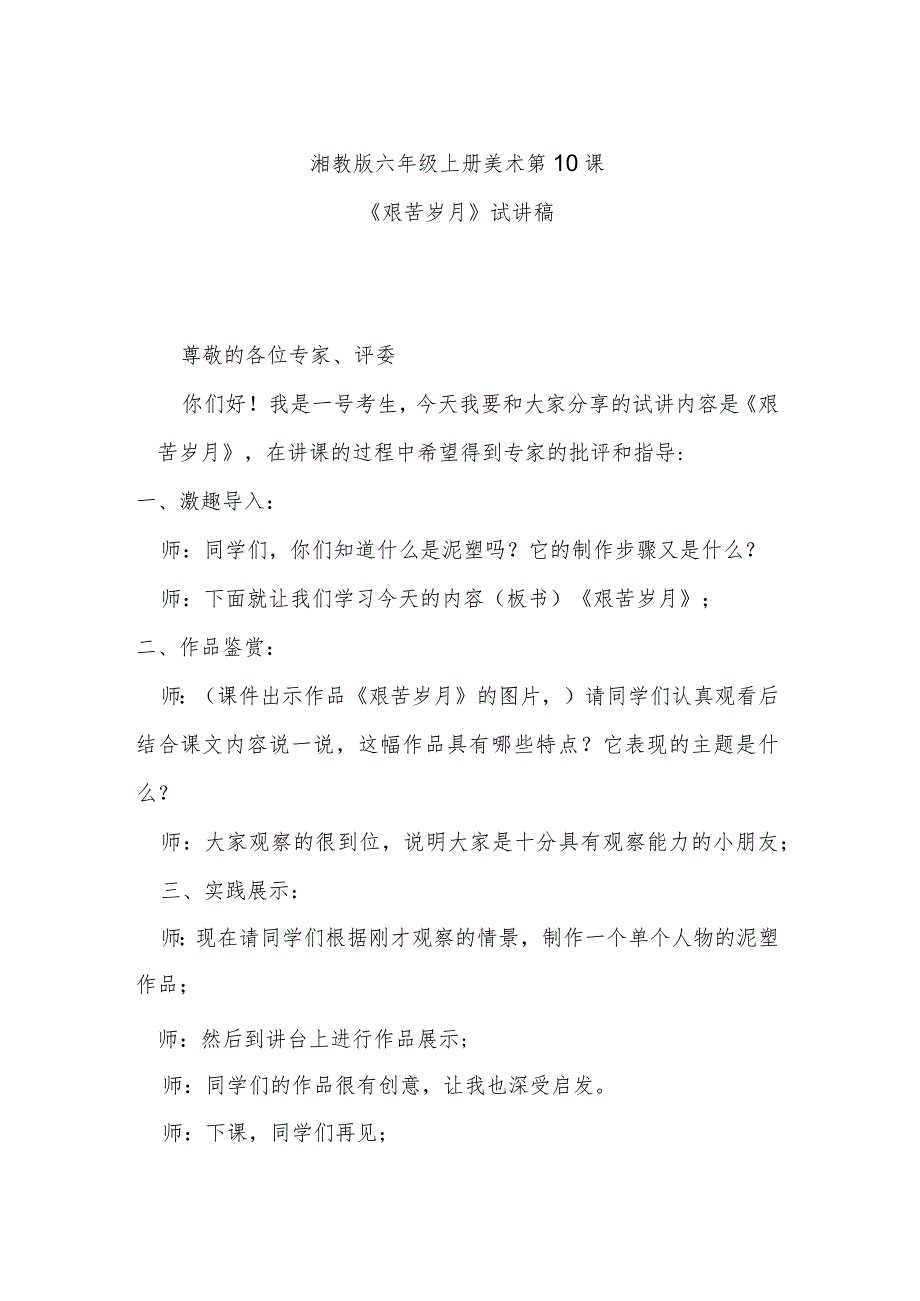 湘教版六年级上册美术第10课
《艰苦岁月》试讲稿
尊敬的各位专家、评委
你们好！我是一号考生，今天我要和大家分享的试讲内容是《艰
苦岁月》，在讲课的过程中希望得到专家的批评和指导：
一、激趣导入：
师：同学们，你们知道什么是泥塑吗？它的制作步骤又是什么？
师：下面就让我们学习今天的内容（板书）《艰苦岁月》；
二、作品鉴赏：
师：（课件出示作品《艰苦岁月》的图片，）请同学们认真观看后
结合课文内容说一说，这幅作品具有哪些特点？它表现的主题是什
么？
师：大家观察的很到位，说明大家是十分具有观察能力的小朋友；
三、实践展示：
师：现在请同学们根据刚才观察的情景，制作一个单个人物的泥塑
作品；
师：然后到讲台上进行作品展示；
师：同学们的作品很有创意，让我也深受启发。
师：下课，同学们再见；